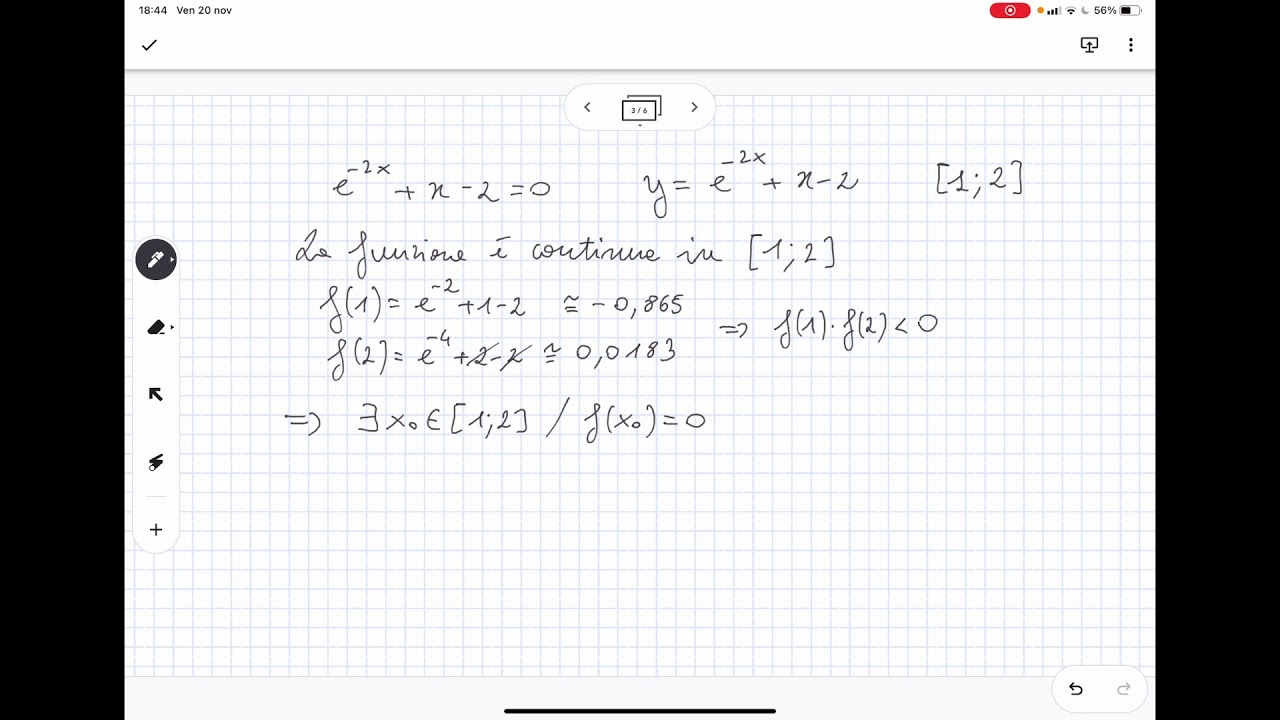 18:44 Ven 20 nov 56%
3 / 6
e^{-2x} + x - 2 = 0 y = e^{-2x} + x - 2 [1; 2]
La funzione è continua in [1; 2]
f(1) = e^{-2} + 1 - 2 ≅ - 0,865
⇒ f(1) · f(2) < 0
f(2) = e^{-4} + 2 - 2 ≅ 0,0183
⇒ ∃ x₀ ∈ [1; 2] / f(x₀) = 0